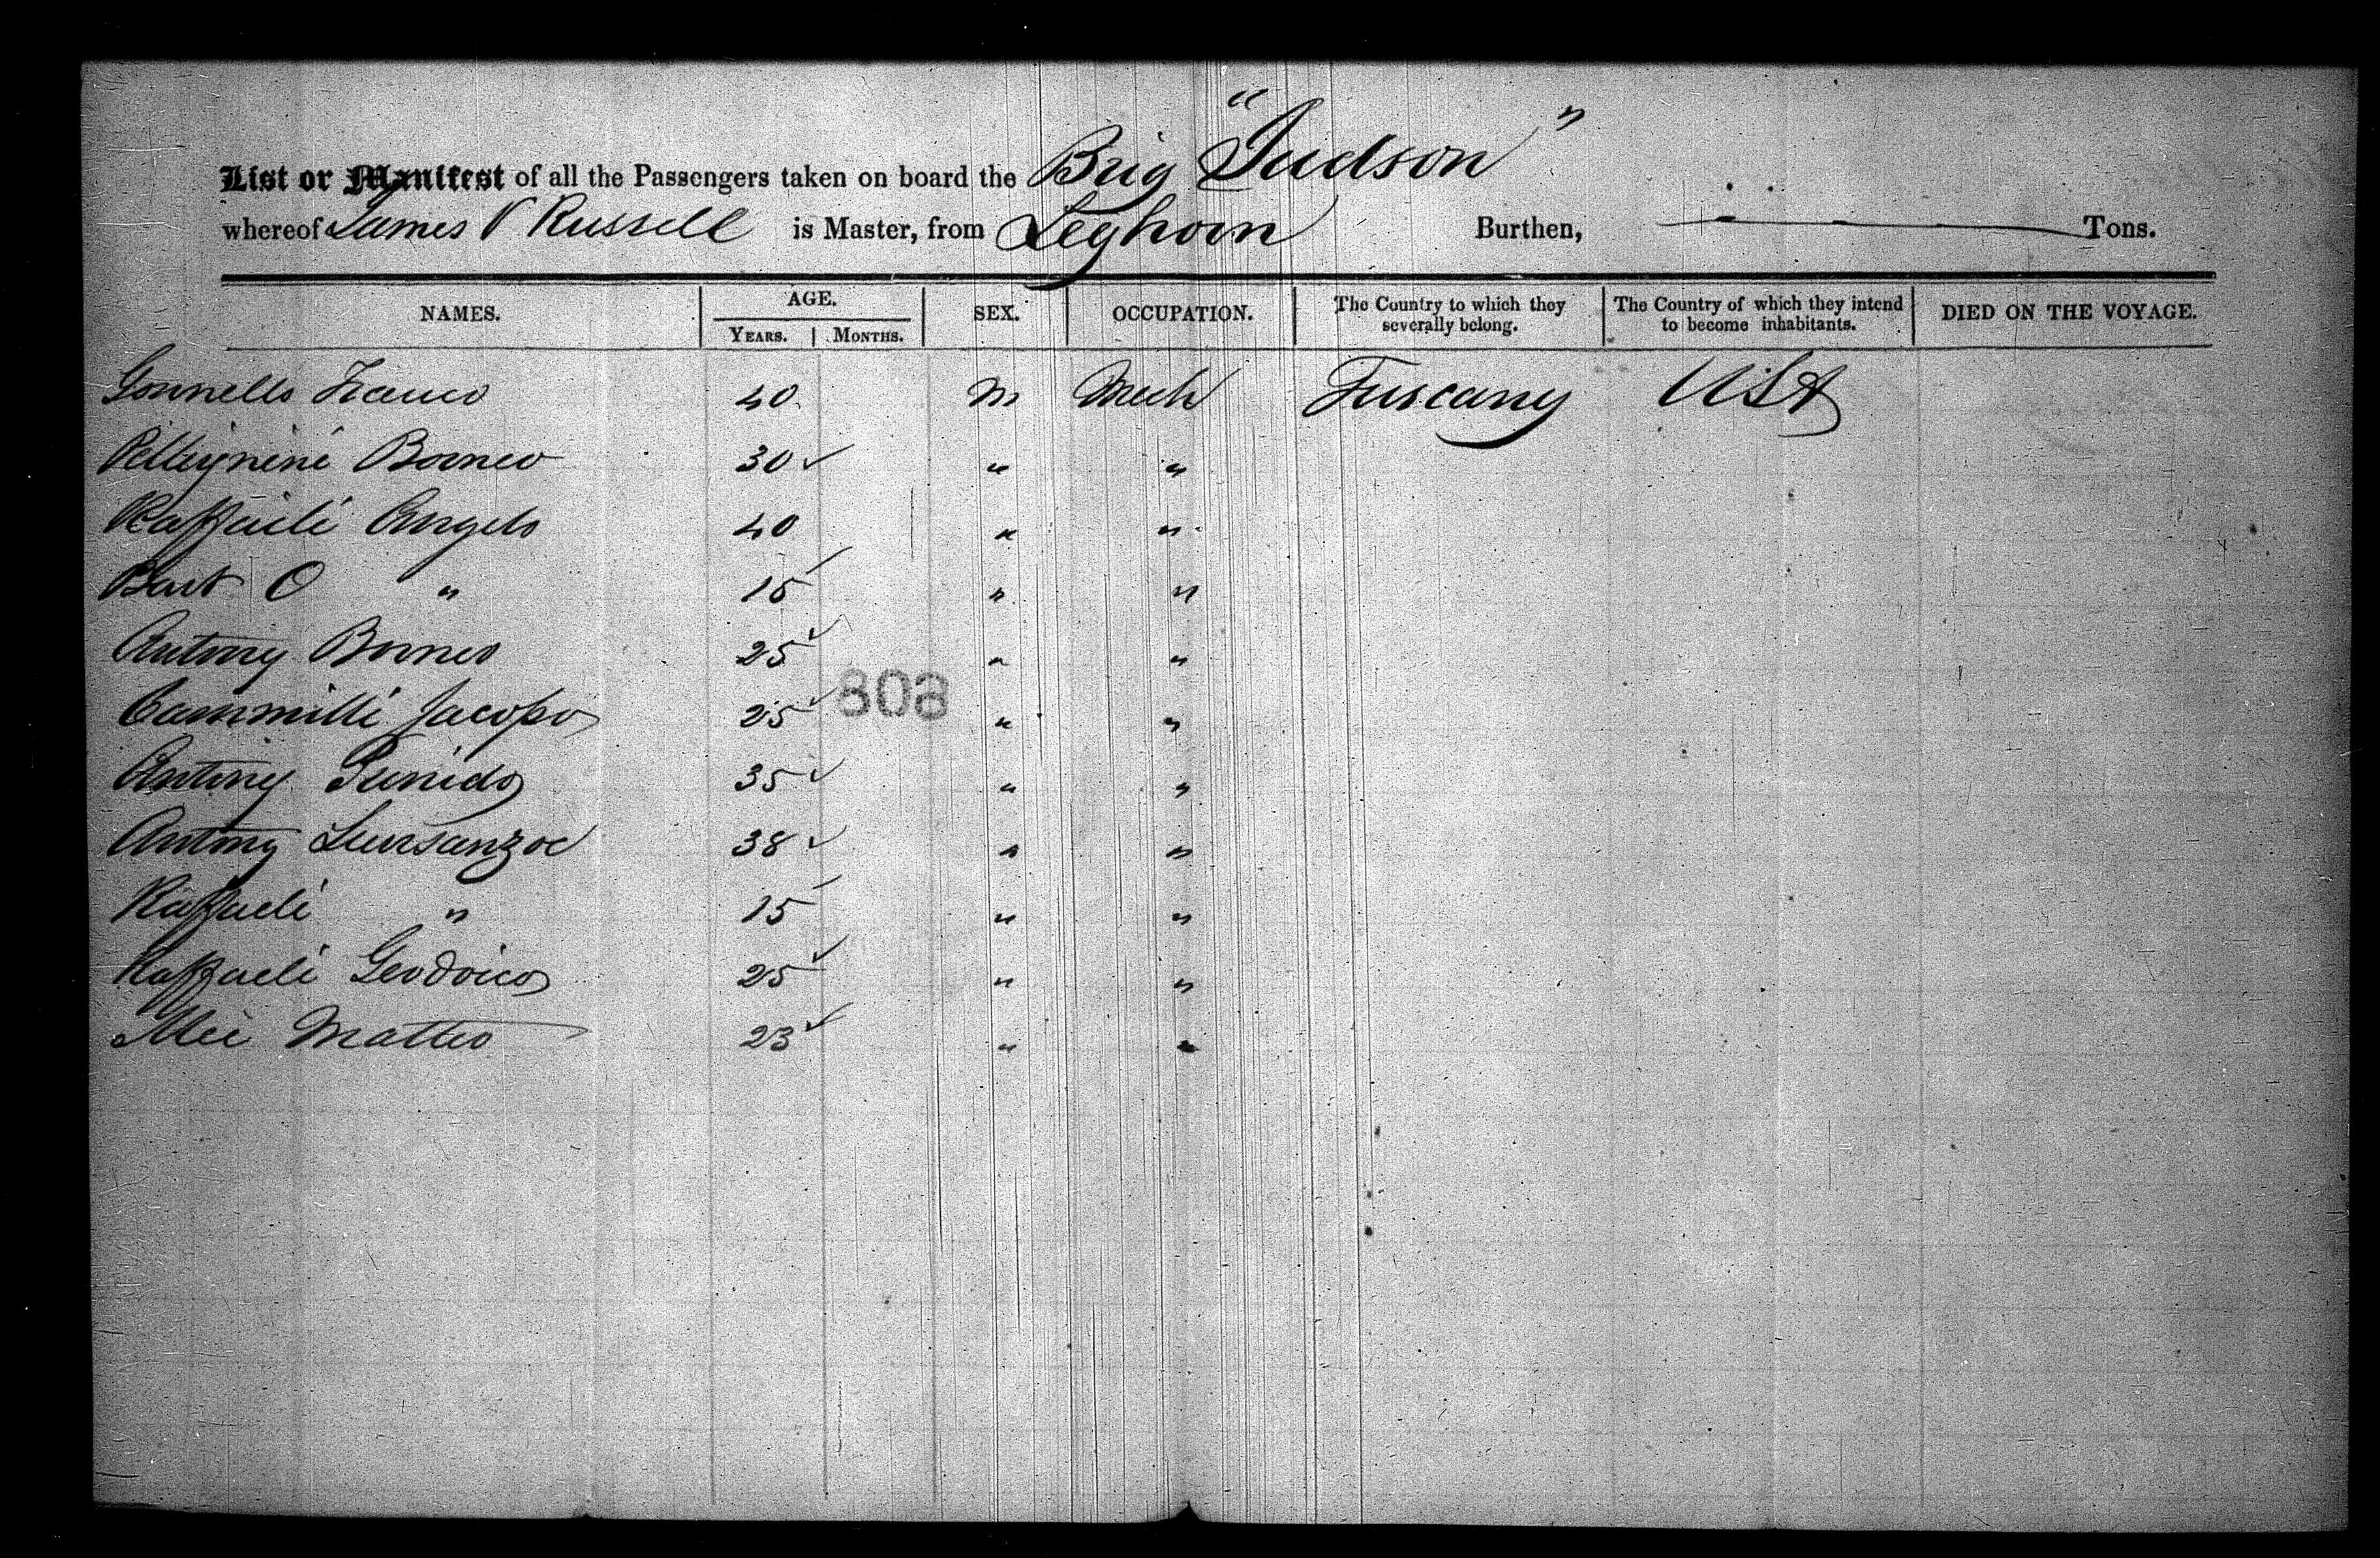 List or Manifest of all the Passengers taken on board the Brig "Judson"
whereof James V Russell is Master, from Leghorn Burthen, Tons.
NAMES. AGE. SEX. OCCUPATION. The Country to which they severally belong. The Country of which they intend to become inhabitants. DIED ON THE VOYAGE.
YEARS. MONTHS.
Gonnello 40 m Mech Tuscany USA
Pellegrini Borneo 30 " "
Raffaeli Angelo 40 " "
Bart O " 15 " "
Antony Borneo 25 " "
808
Cammilli Jacopo 25 " "
Antony 35 " "
Antony 38 " "
Raffaeli " 15 " "
Raffaeli 25 " "
Mei Matteo 23 " "